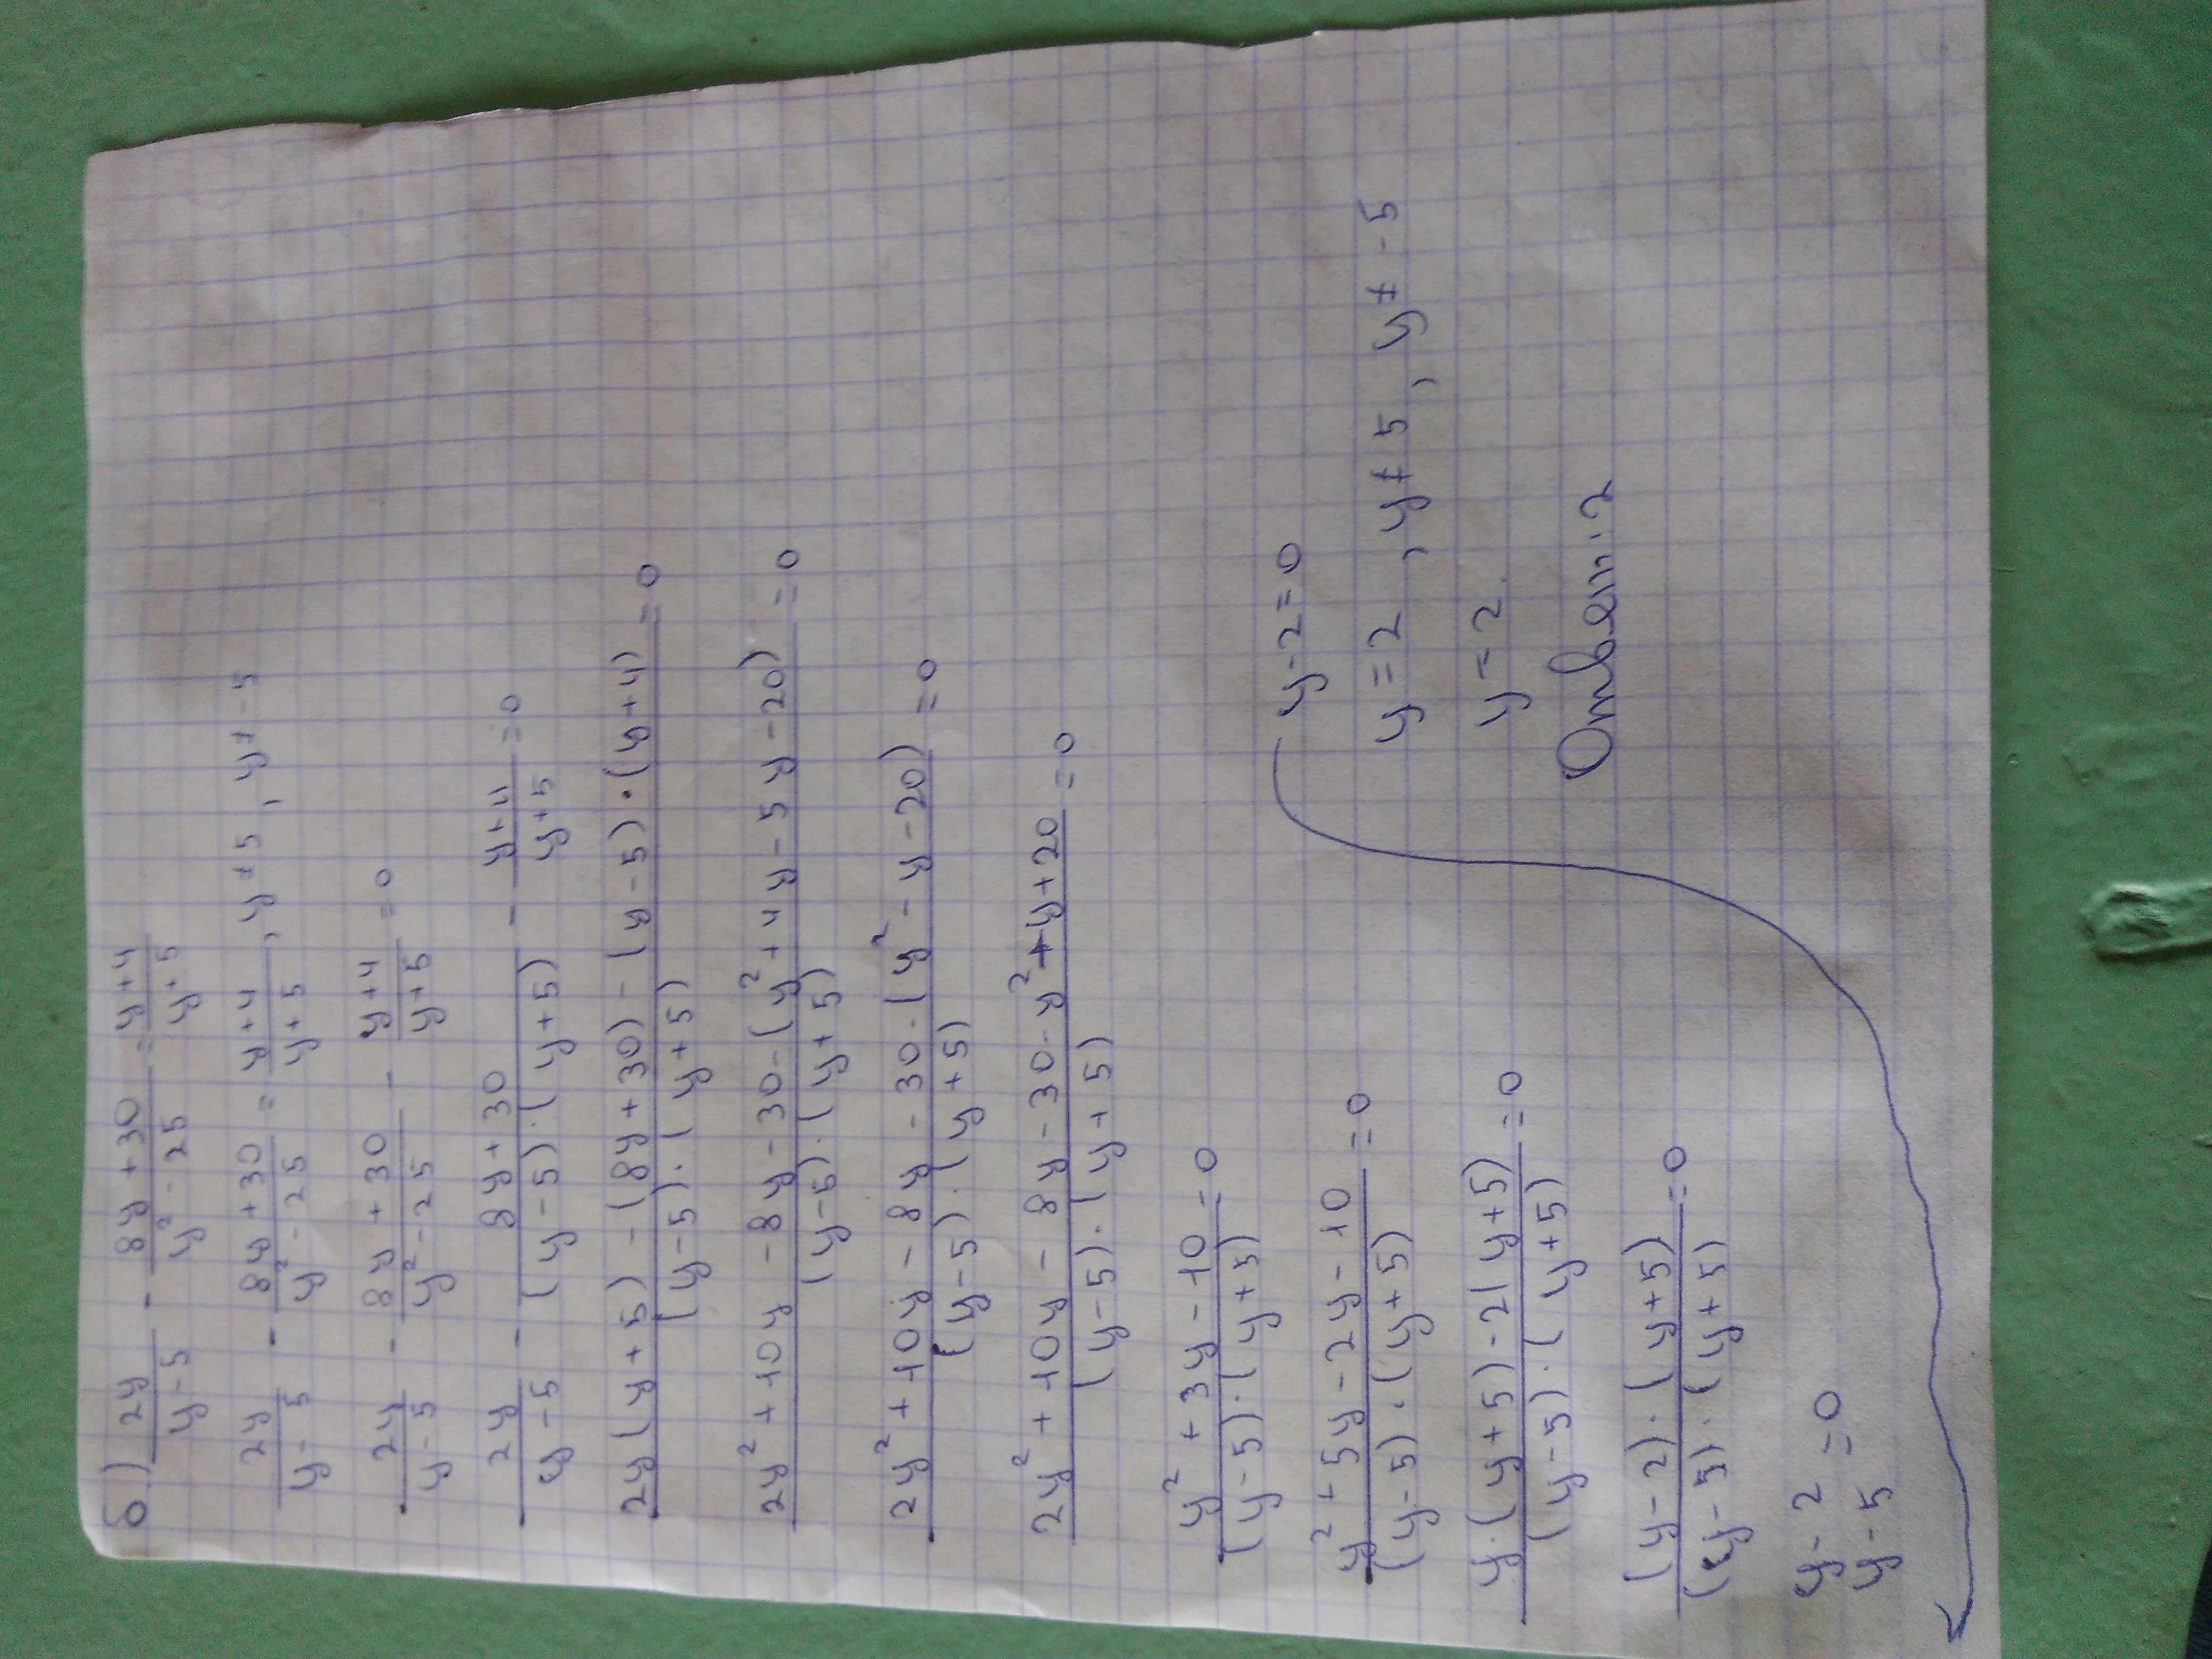 б.) 2y/y-5 - 8y+30/y²-25 = y+4/y+5
2y/y-5 - 8y+30/y²-25 = y+4/y+5, y≠5, y≠-5
2y/y-5 - 8y+30/y²-25 - y+4/y+5 = 0
2y/y-5 - 8y+30/(y-5)·(y+5) - y+4/y+5 = 0
2y(y+5)-(8y+30)-(y-5)·(y+4)/(y-5)·(y+5) = 0
2y²+10y-8y-30-(y²+4y-5y-20)/(y-5)·(y+5) = 0
2y²+10y-8y-30-(y²-y-20)/(y-5)·(y+5) = 0
2y²+10y-8y-30-y²+y+20/(y-5)·(y+5) = 0
y²+3y-10/(y-5)·(y+5) = 0
y²+5y-2y-10/(y-5)·(y+5) = 0
y·(y+5)-2(y+5)/(y-5)·(y+5) = 0
(y-2)·(y+5)/(y-5)·(y+5) = 0
y-2/y-5 = 0
y-2=0
y=2, y≠5, y≠-5
y=2
Ответ: 2